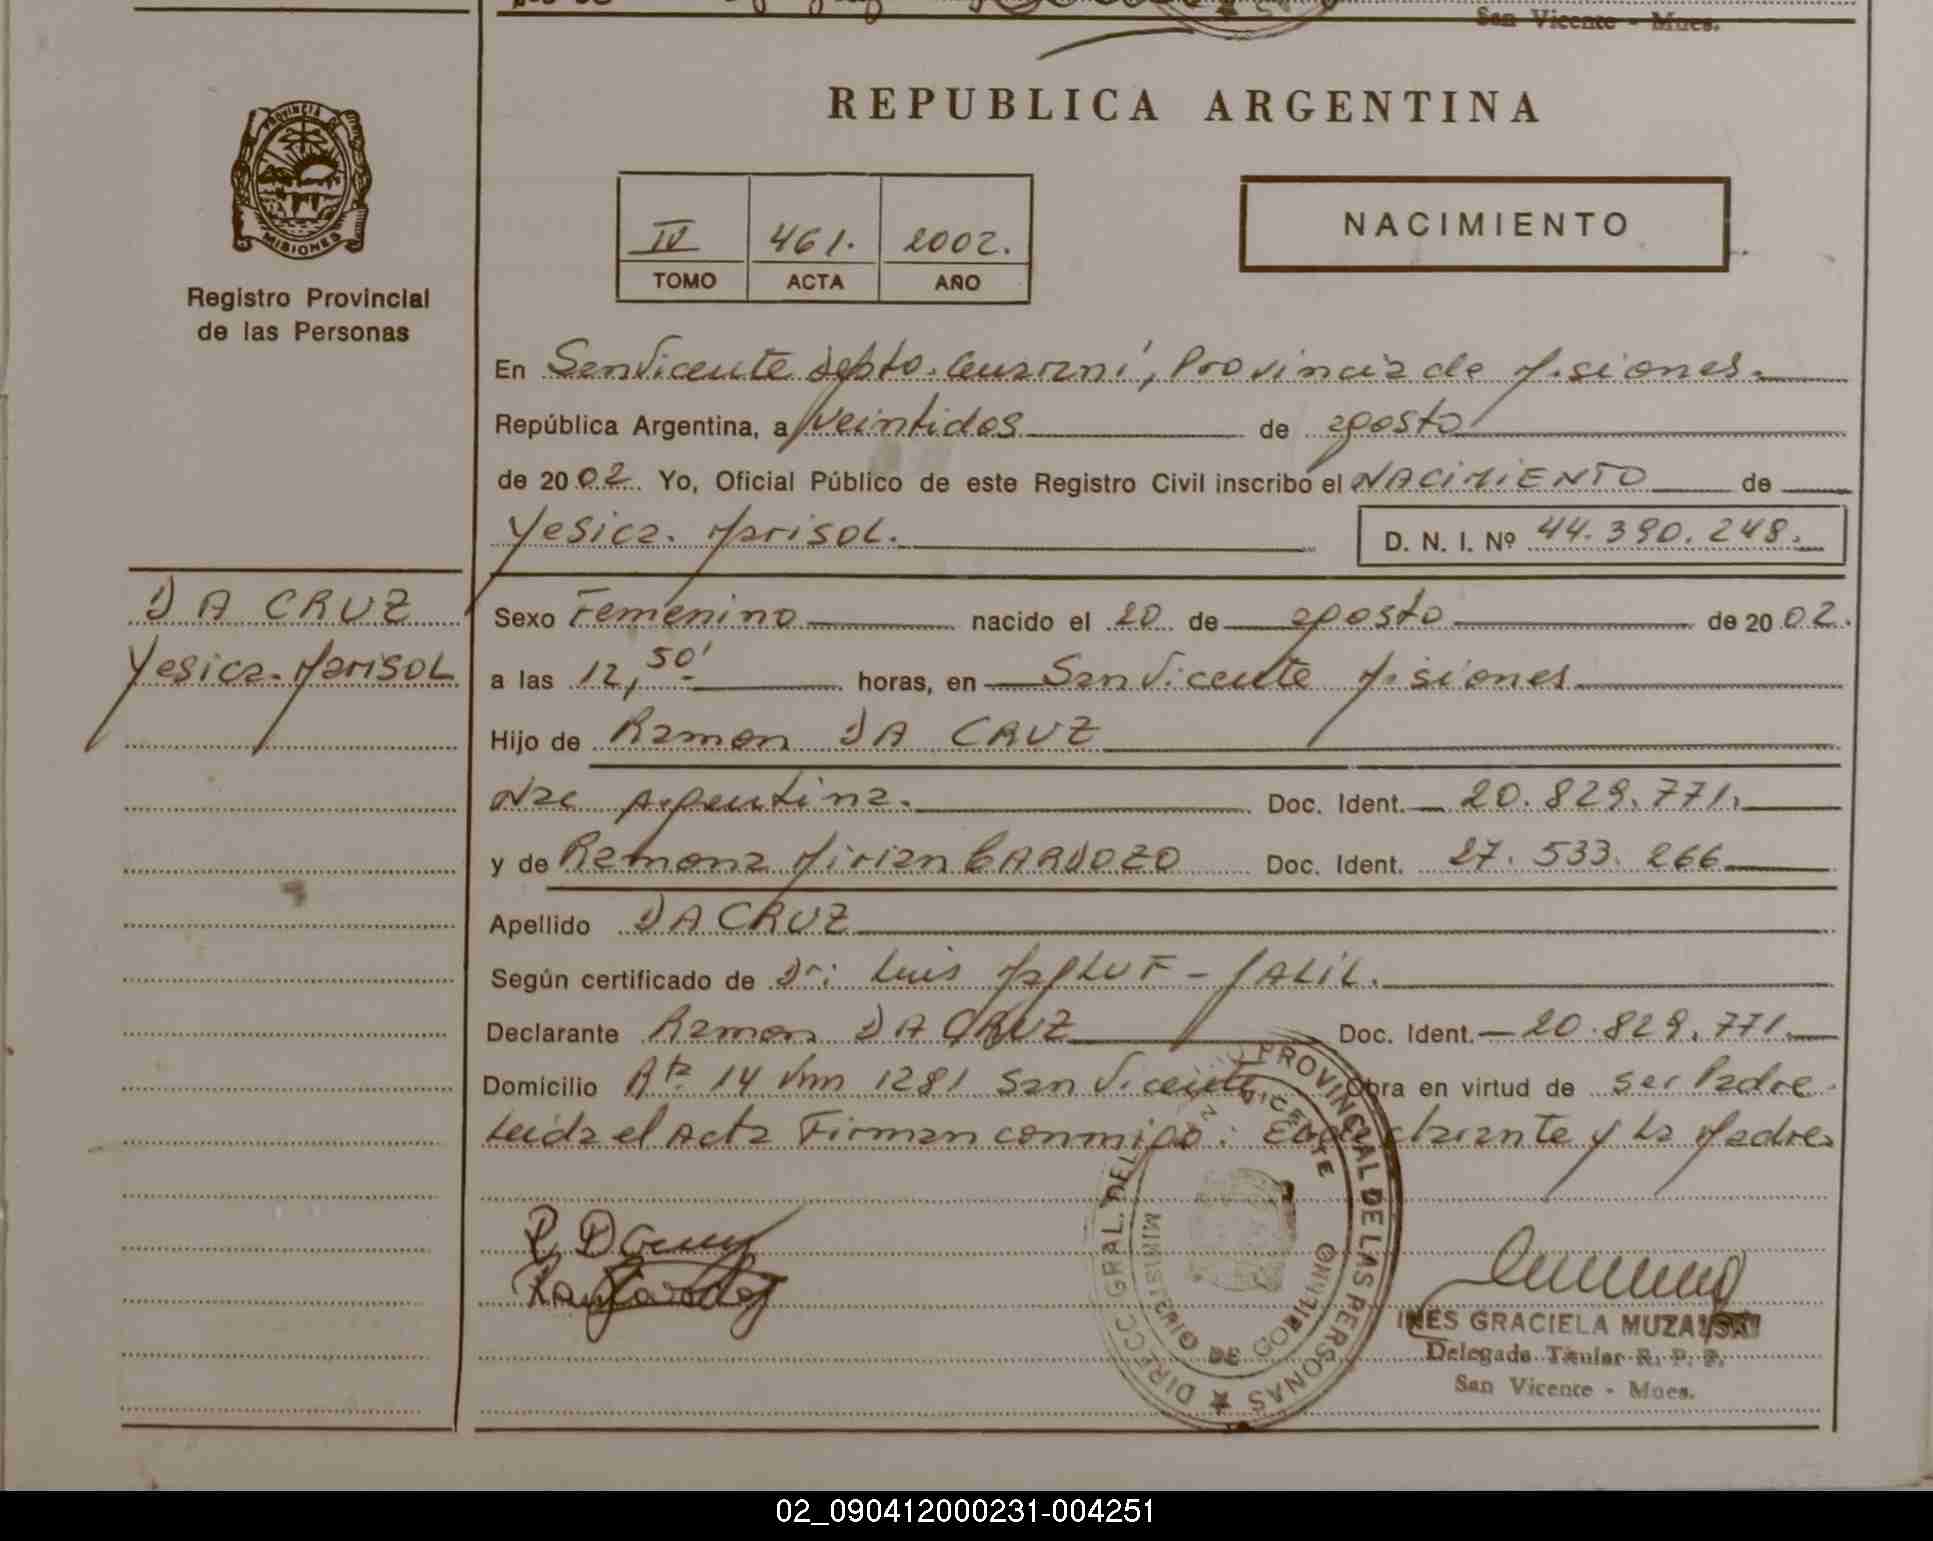 San Vicente - Mnes.
PROVINCIA DE
MISIONES
Registro Provincial
de las Personas
REPUBLICA ARGENTINA
IV 461. 2002.
TOMO ACTA AÑO
NACIMIENTO
En San Vicente Depto. Guaraní, Provincia de Misiones.
República Argentina, a Veintidos de agosto
de 2002. Yo, Oficial Público de este Registro Civil inscribo el NACIMIENTO de
Yesica. Marisol. D. N. I. Nº 44.390.248.
DA CRUZ
Yesica. Marisol
Sexo Femenino nacido el 20 de agosto de 2002.
a las 12,50' horas, en San Vicente Misiones
Hijo de Ramon DA CRUZ
Nac Argentina. Doc. Ident. 20.829.771.
y de Ramona Mirian CARDOZO Doc. Ident. 27.533.266
Apellido DA CRUZ
Según certificado de Dr: Luis MALUF - JALIL.
Declarante Ramon DA CRUZ Doc. Ident. 20.829.771.
Domicilio Rta 14 Km 1281 San Vicente Obra en virtud de ser Padre.
Leida el Acta Firman conmigo: El declarante y La Madre
DIRECC. GRAL. DEL PROVINCIAL DE LAS PERSONAS
SAN VICENTE
MINISTERIO DE GOBIERNO
INES GRACIELA
Delegada Titular R. P. P.
San Vicente - Mnes.
02_090412000231-004251